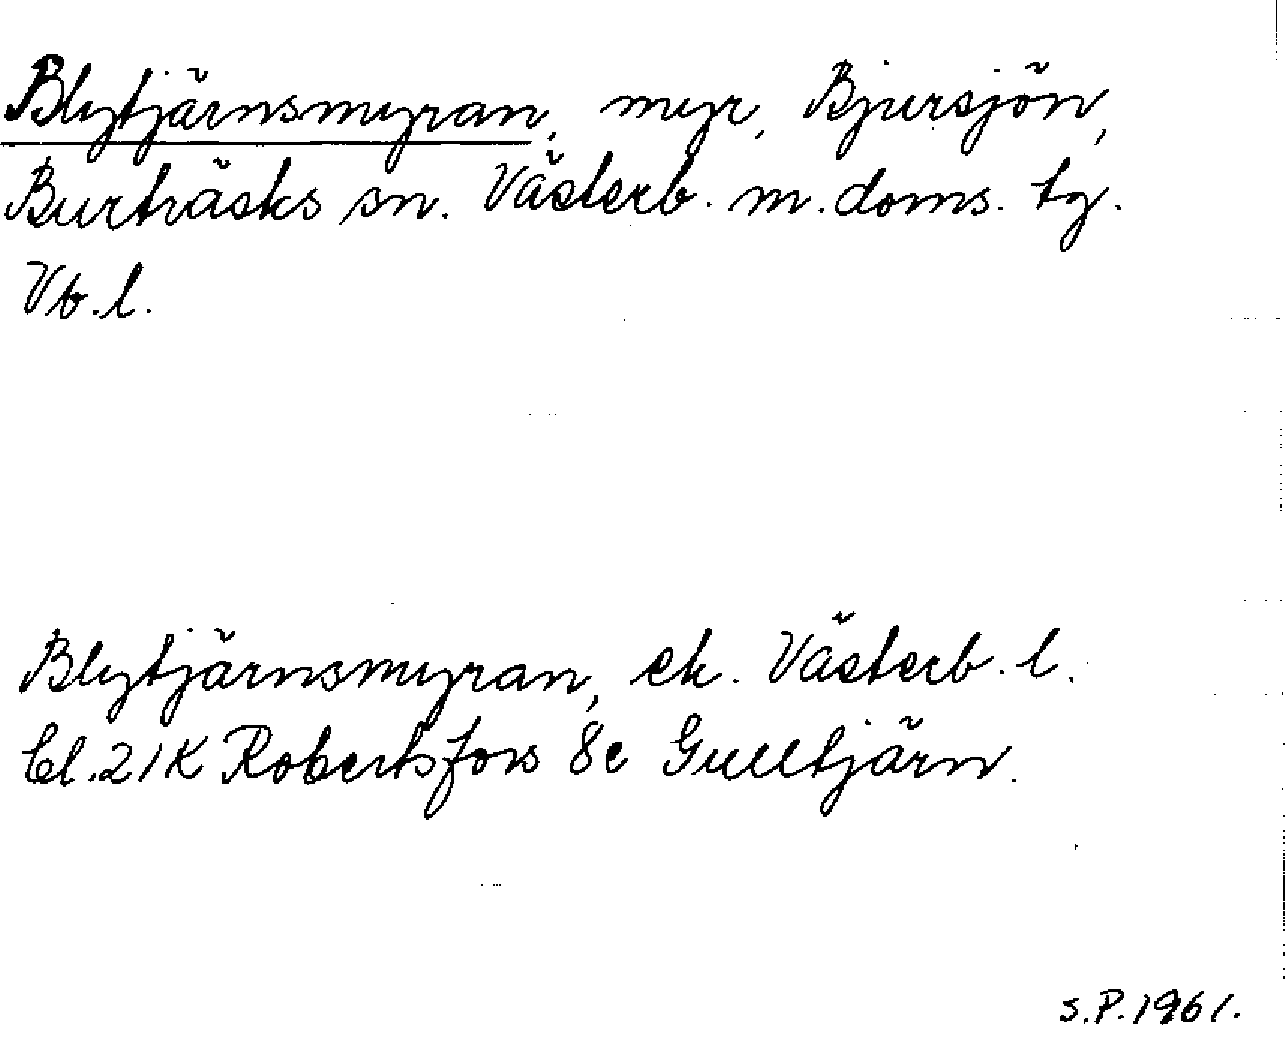 Blytjärnsmyran, myr, Bjursjön,
Burträsks sn. Västerb. m. doms. tg.
Vb. l.
Blytjärnsmyran, ek. Västerb. l.
bl. 21K Robertsfors 8e Gulltjärn.
S.P. 1961.